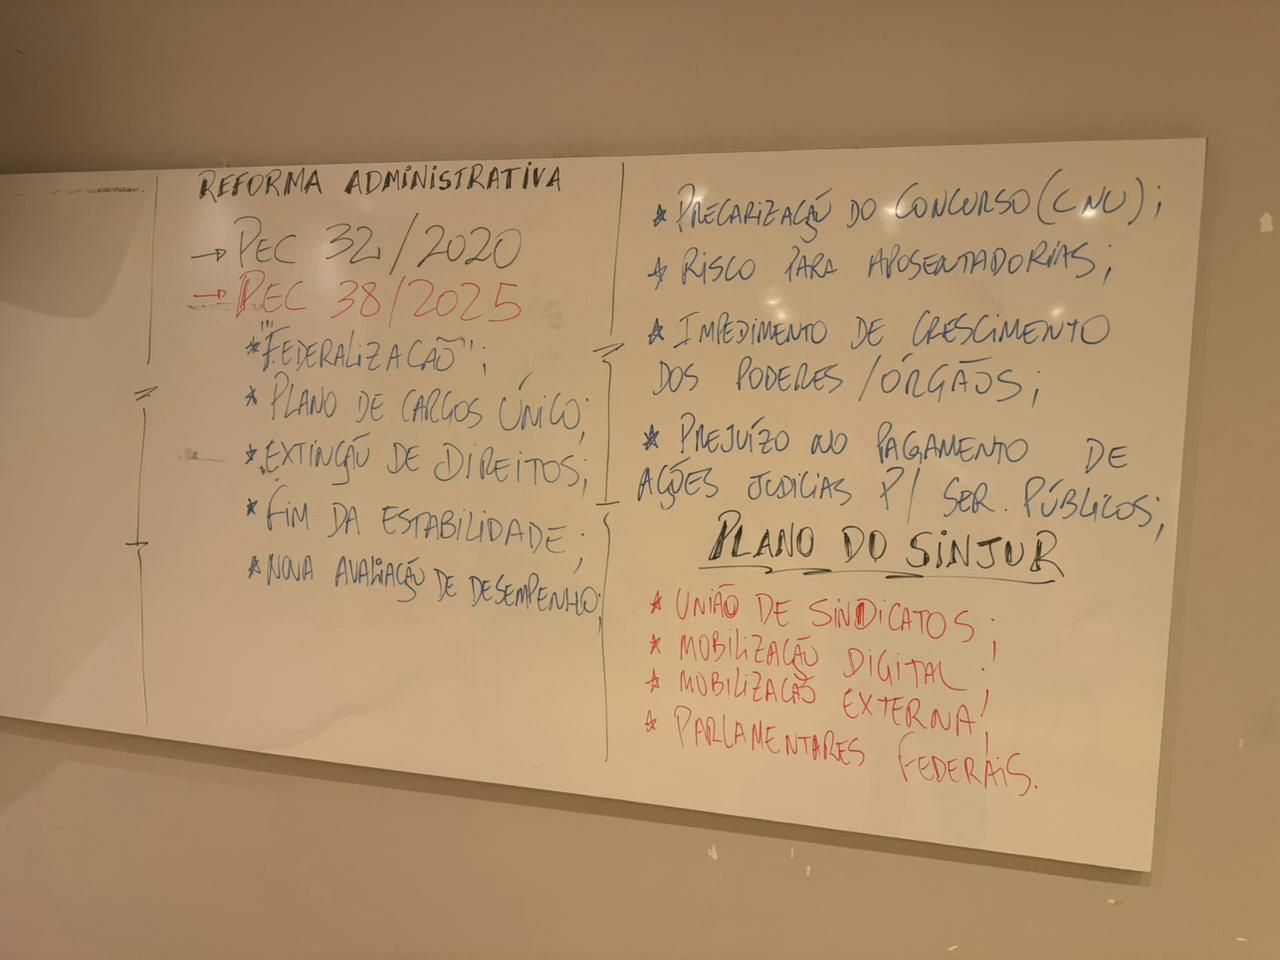 REFORMA ADMINISTRATIVA
→ PEC 32/2020
→ PEC 38/2025
* "FEDERALIZAÇÃO";
* PLANO DE CARGOS ÚNICO;
* EXTINÇÃO DE DIREITOS;
* FIM DA ESTABILIDADE;
* NOVA AVALIAÇÃO DE DESEMPENHO;
* PRECARIZAÇÃO DO CONCURSO (CNU);
* RISCO PARA APOSENTADORIAS;
* IMPEDIMENTO DE CRESCIMENTO
DOS PODERES / ÓRGÃOS;
* PREJUÍZO NO PAGAMENTO DE
AÇÕES JUDICIAS P/ SER. PÚBLICOS;
PLANO DO SINJUR
* UNIÃO DE SINDICATOS;
* MOBILIZAÇÃO DIGITAL;
* MOBILIZAÇÃO EXTERNA;
* PARLAMENTARES FEDERAIS.